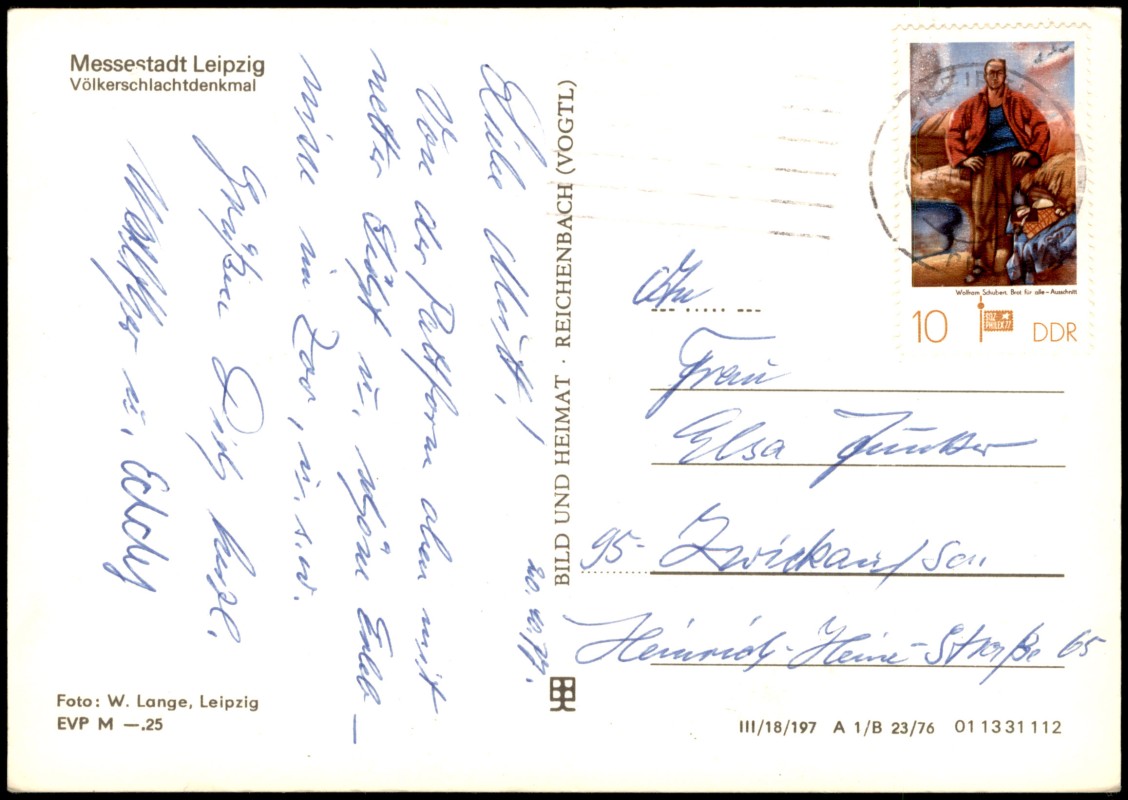 Messestadt Leipzig
Völkerschlachtdenkmal
20.10.77.
Liebe Mutti,!
Von der Plattform oben mit
netter Sicht u. schöne Erleb–
nisse im Zoo, u.s.w.
Grüßen Dich herzl.
u. Eddy
Foto: W. Lange, Leipzig
EVP M —.25
BILD UND HEIMAT · REICHENBACH (VOGTL)
Wolfram Schubert, Brot für alle – Ausschnitt
10
SOZ
PHILEX 77
DDR
An
Frau
Elsa Junker
95- Zwickau/Sa.
Heinrich-Heine-Straße 65
III/18/197 A 1/B 23/76 01 13 31 112